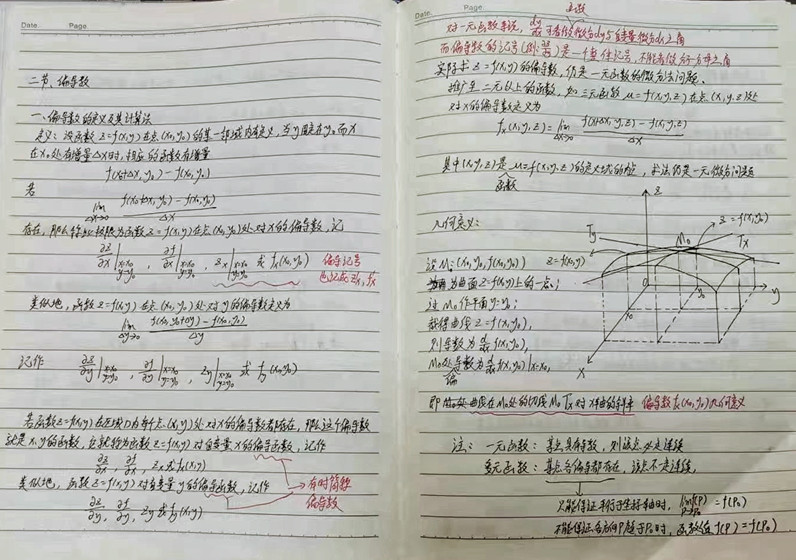 Date. Page.
二节、偏导数
一、偏导数的定义及其计算法
定义：设函数 z=f(x,y) 在点(x₀,y₀)的某一邻域内有定义，当y固定在y₀而x
在x₀处有增量Δx时，相应的函数有增量
f(x₀+Δx, y₀) - f(x₀,y₀)
若
lim Δx→0 f(x₀+Δx, y₀) - f(x₀,y₀) / Δx
存在，那么称此极限为函数 z=f(x,y) 在点(x₀,y₀)处对x的偏导数，记
∂z/∂x | x=x₀ y=y₀ , ∂f/∂x | x=x₀ y=y₀ , zx | x=x₀ y=y₀ 或 fx(x₀,y₀) 偏导记号
也记成z'x, f'x
类似地，函数 z=f(x,y) 在点(x₀,y₀)处对y的偏导数定义为
lim Δy→0 f(x₀,y₀+Δy) - f(x₀,y₀) / Δy
记作 ∂z/∂y | x=x₀ y=y₀ , ∂f/∂y | x=x₀ y=y₀ , zy | x=x₀ y=y₀ 或 fy(x₀,y₀)
若函数z=f(x,y)在区域D内每个点(x,y)处对x的偏导数都存在，那么这个偏导数
就是x、y的函数，它就称为函数z=f(x,y)对自变量x的偏导函数，记作
∂z/∂x , ∂f/∂x , zx 或 fx(x,y)
类似地，函数z=f(x,y)对自变量y的偏导函数，记作 有时简称
∂z/∂y , ∂f/∂y , zy 或 fy(x,y) 偏导数
Date. Page.
函数
对一元函数来说，dy/dx 可看做微分dy与自变量微分dx之商
而偏导数的记号(例)是一个整体记号，不能看做分子分母之商
实际求 z=f(x,y)的偏导数，仍是一元函数的微分法问题。
推广至二元以上的函数，如三元函数 u=f(x,y,z)在点(x,y,z)处
对x的偏导数定义为
fx(x,y,z) = lim Δx→0 f(x+Δx, y, z) - f(x,y,z) / Δx
其中(x,y,z)是u=f(x,y,z)的定义域的内点，求法仍是一元微分问题
函数
几何意义：
z
z=f(x,y₀)
Ty M₀ Tx
z=f(x,y)
O
x₀ y₀ y
x
设M₀(x₀,y₀,f(x₀,y₀))
为曲面 z=f(x,y)上的一点；
过M₀作平面 y=y₀；
截得曲线 z=f(x,y₀)，
则导数为 d/dx f(x,y₀)，
M₀处导数为 d/dx f(x,y₀)|x=x₀，
偏
即曲线在M₀处的切线M₀Tx对x轴的斜率 偏导数fx(x₀,y₀)几何意义
注：一元函数：某点具有导数，则该点必定连续
多元函数：某点各偏导都存在，该点不一定连续，
只能保证平行于坐标轴时，lim P→P₀ f(P) = f(P₀)
不能保证各方向P趋于P₀时，函数值 f(P) = f(P₀)